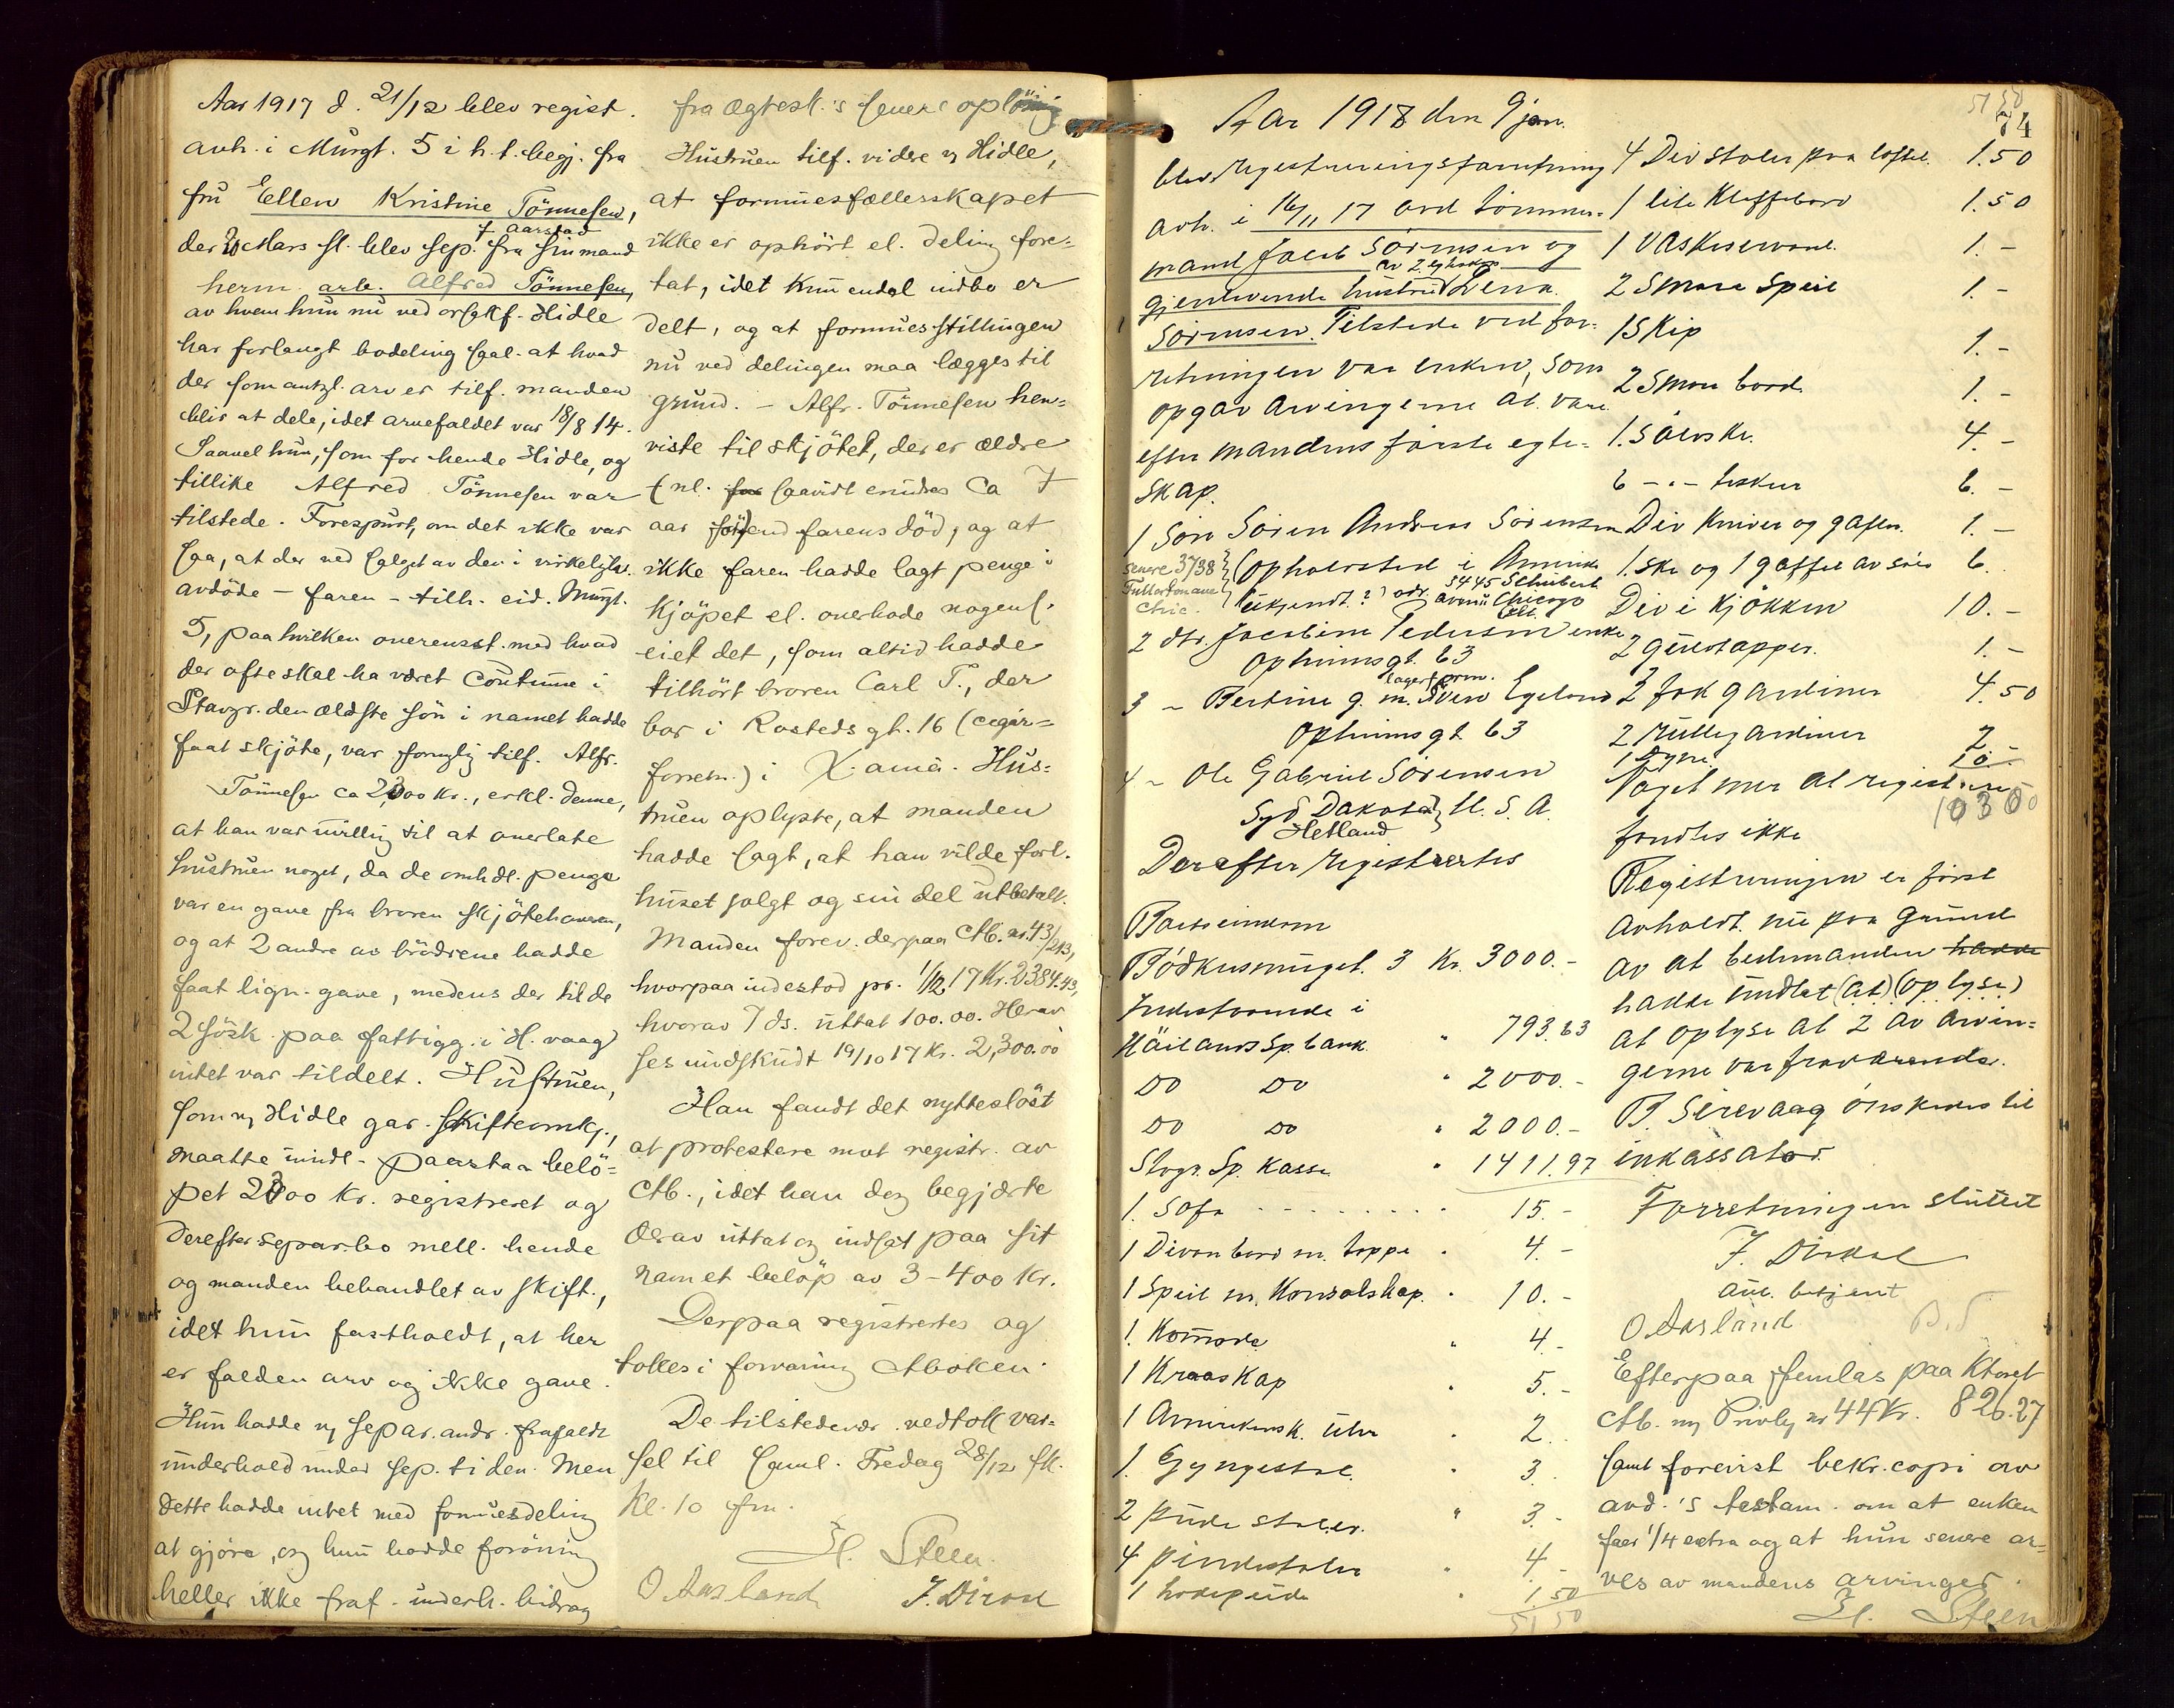 Aar 1917 d. 21/12 blev regist.
avh. i Murgt. 5 i h.t. begj. fra
fru Ellen Kristine Tönnesen,
f. Aarstad
der Mars sl. blev sep. fra sin mand
herm. arb. Alfred Tönnesen,
av hvem hun nu ved orsakf. Hidle
har forlangt bodeling saal. at hvad
der som antgl. arv er tilf. manden
blir at dele, idet arvefaldet var 18/8 14.
Saavel hun, som for hende Hidle, og
tillike Alfred Tönnesen var
tilstede. Forespurt, om det ikke var
saa, at der ved salget av den i virkeligh.
avdöde - faren - tilh. eid. Murgt.
5, paa hvilken overensst. med hvad
der ofte skal ha været coutume i
Stavgr. den ældste sön i navnet hadde
faat skjöte, var fornylig tilf. Alfr.
Tönnesen ca 2300 kr., erkl. denne,
at han var uvillig til at overlate
hustruen noget, da de omhdl. penge
var en gave fra broren skjötehaveren,
og at 2 andre av brödrene hadde
faat lign. gave, medens der til de
2 sösk. paa fattigg. i H. vaag
intet var tildelt. Hustruen,
som v/ Hidle gav skifteomkj.,
maatte imidl. paastaa belö-
pet 2300 kr. registreret og
derefter separ.bo mell. hende
og manden behandlet av skift.,
idet hun fastholdt, at her
er falden arv og ikke gave.
Hun hadde v/ separ. andr. frafaldt
underhold under sep. tiden. Men
dette hadde intet med formuesdeling
at gjöre, og hun hadde foröning
heller ikke fraf. underh. bidrag
fra ægtesk.'s senere oplösning
Hustruen tilf. videre v/ Hidle,
at formuesfællesskapet
ikke er ophört el. deling fore-
tat, idet kun endel indbo er
delt, og at formuesstillingen
nu ved delingen maa lægges til
grund. - Alfr. Tönnesen hen-
viste til skjötet, der er ældre
(nl. saavidt erindres ca 7
aar för) end farens död, og at
ikke faren hadde lagt penge i
kjöpet el. overhode nogens.
eiet det, som altid hadde
tilhört broren Carl T., der
bor i Rosteds gt. 16 (cigar-
forretn.) i X.ania. Hus-
truen oplyste, at manden
hadde sagt, at han vilde forl.
huset solgt og sin del utbetalt.
Manden forev. derpaa Ctb. nr. 43/213,
hvorpaa indestod pr. 1/12 17 Kr. 2384.43,
hvorav 7 ds. uttat 100.00. Herav
ses indskudt 19/10 17 Kr. 2,300.00
Han fandt det nyttesløst
at protestere mot registr. av
Ctb., idet han dog begjærte
derav uttat og indsat paa sit
navn et belöp av 3-400 Kr.
Derpaa registrertes og
tokes i forvaring Ctboken.
De tilstedevær. vedtok var-
sel til saml. Fredag 28/12 sk.
Kl. 10 fm.
H. Steen.
O Aasland J. Dirdal
51 50
74
Aar 1918 den 9 jan.
blev registreringsforretning
avh. i 16/11 17 avd tömmer-
mand Jacob Sörensen og
av 2. egteskap
gjenlevende hustru Lena
Sörensen. Tilstede ved for-
retningen var enken, som
opgav arvingerne at være
efter mandens förste egte-
skap.
1 Sön Sören Andreas Sörensen
senere 3738 Fullerton ave Chic.
(Opholdsted i Amerika
ukjendt?) adr. 3445 Schubert Avenu Chicago
2 dtr. Jacobine Pedersen enke
Ophiemsgt. 63
lagerform.
3 - Bertine g. m. Sven Egeland
Ophiemsgt 63
4 - Ole Gabriel Sörensen
Syd Dakota U. S. A.
Hetland
Derefter registrertes
Faste eiendom
Bödkersmuget. 3 Kr. 3000.-
Indestaaende i
Häilands Sp. bank " 793.63
Do Do " 2000.-
Do Do " 2000.-
Stvgr. Sp. kasse " 1411.97
1. Sofa . . . . . . . . 15.-
1 Divanbord m. teppe " 4.-
1 Speil m. Konsolskap. " 10.-
1. Komode " 4.-
1 Kraaskap " 5.-
1 Amerikansk. uhr " 2.
1. Gyngestol " 3.
2 pudestoler. " 3.-
4 pindestoler " 4.-
1 hodepude " 1.50
51 50
4 Div stoler paa loftet. 1.50
1 lite Klaffebord 1.50
1 Vaskeservant. 1.-
2 Smaa Speil 1.-
1 Skip 1.-
2 Smaa bord 1.-
1. Sölvske. 4.-
6 - " - teskeer 6.-
Div kniver og gafler. 1.-
1. ske og 1 gaffel av sölv 6.
Div i kjökken 10.-
2 gulvtapper. 1.-
2 fak gardiner 4.50
2 Rullegardiner 2
1 Dyne 10.-
Noget mer at registrere
103 00
fandtes ikke
Registreringen er först
avholdt nu paa grund
av at bestemanden hadde
hadde undlat (at) (oplyse)
at oplyse at 2 av arvin-
gerne var fraværende.
B. Sirevaag önskedes til
inkassator.
Forretningen sluttet
J. Dirdal
aut. betjent
O Aasland
Efterpaa femlas paa Ktoret
Ctb. v/ Privbk nr 44 Kr. 826.27
samt forevist bekr. copi av
avd.'s testam. om at enken
faar 1/4 extra og at hun senere ar-
ves av mandens arvinger.
H. Steen